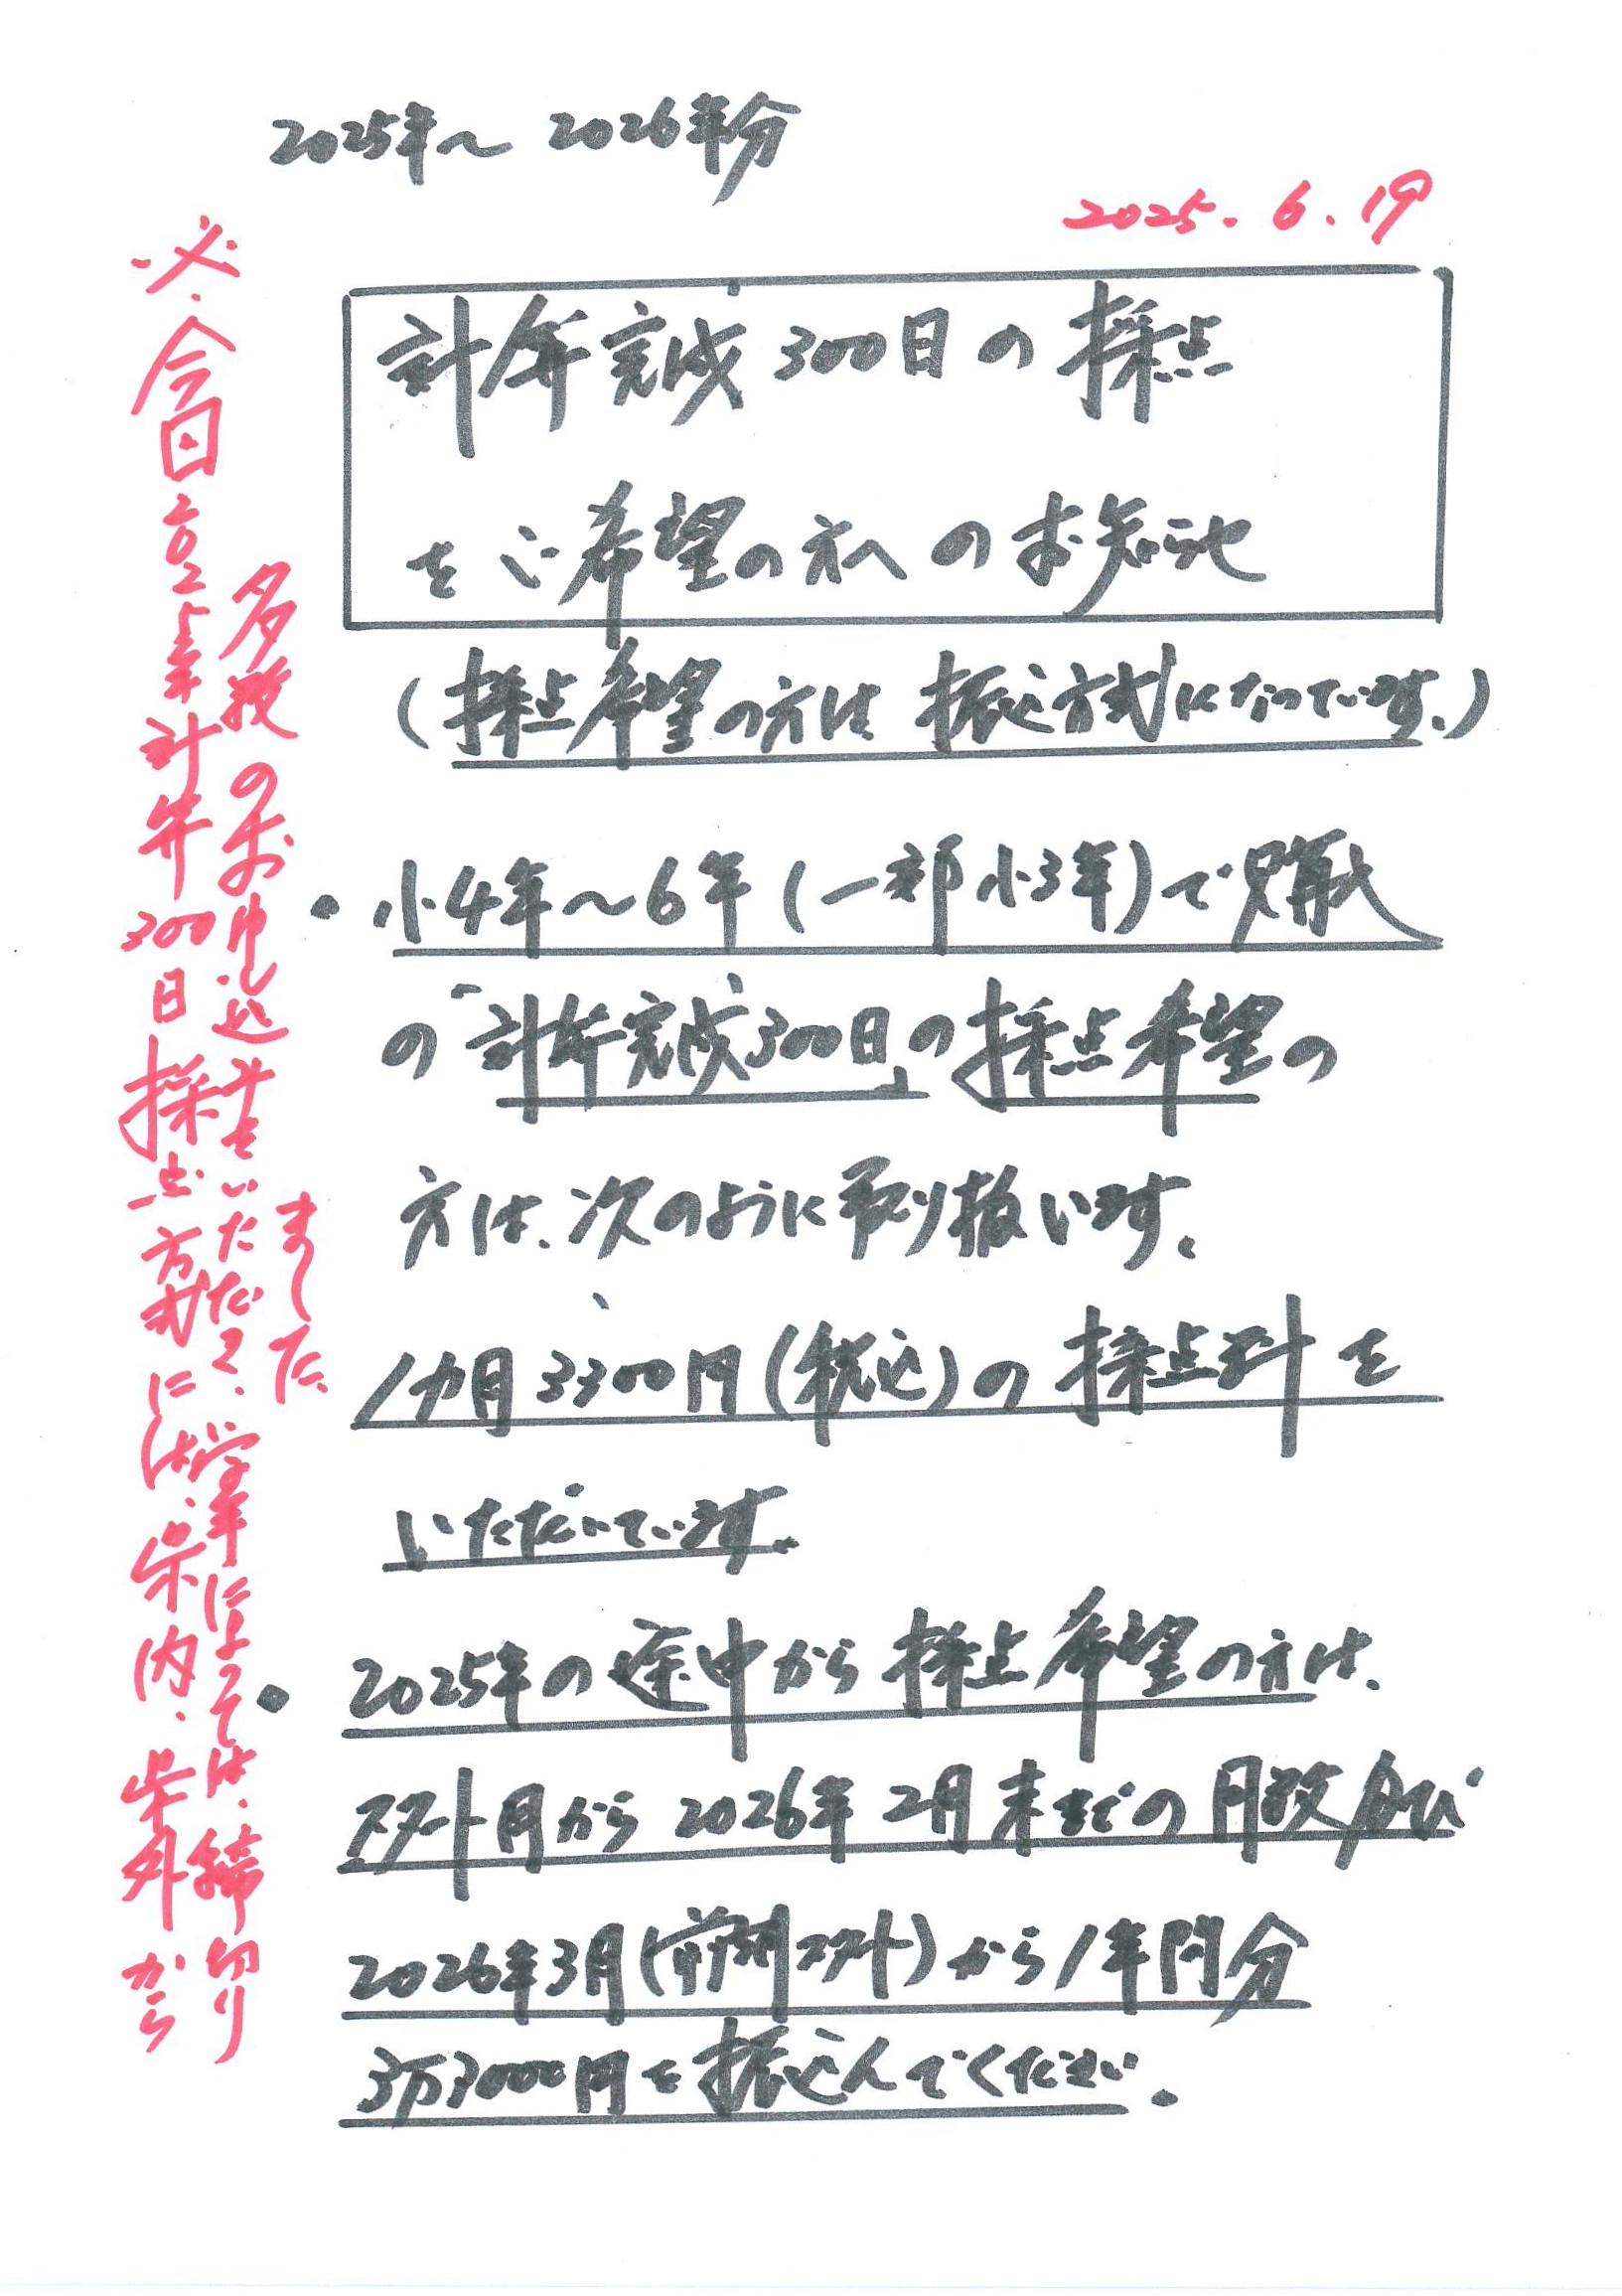 2025年〜2026年分
2025.6.19
計算完成300日の採点
をご希望の方へのお知らせ
(採点希望の方は振込方式になっています。)
・小4年〜6年(一部小3年)で購入
の「計算完成300日」の採点希望の
方は、次のように取り扱います。
1ヵ月3300円(税込)の採点料を
いただいています。
・2025年の途中から採点希望の方は、
スタート月から2026年2月末までの月数及び
2026年3月(前期スタート)から1年間分
3万3000円を振込んでください。
今回二〇二五年計算300日採点方式には、室内、室外から
多数のお申し込みをいただき、学年によっては、締切り
ました。